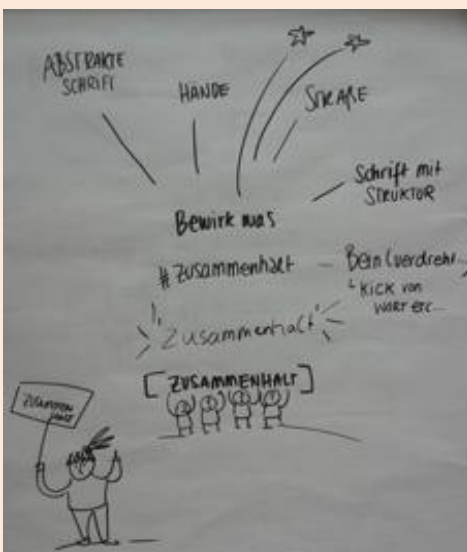 ABSTRAKTE
SCHRIFT
HÄNDE
STRAßE
Schrift mit
STRUKTUR
Bewirk was
#Zusammenhalt
Bein (verdreht...
KICK von
WORT etc...
Zusammenhalt
[ZUSAMMENHALT]
ZUSAMMEN
HALT